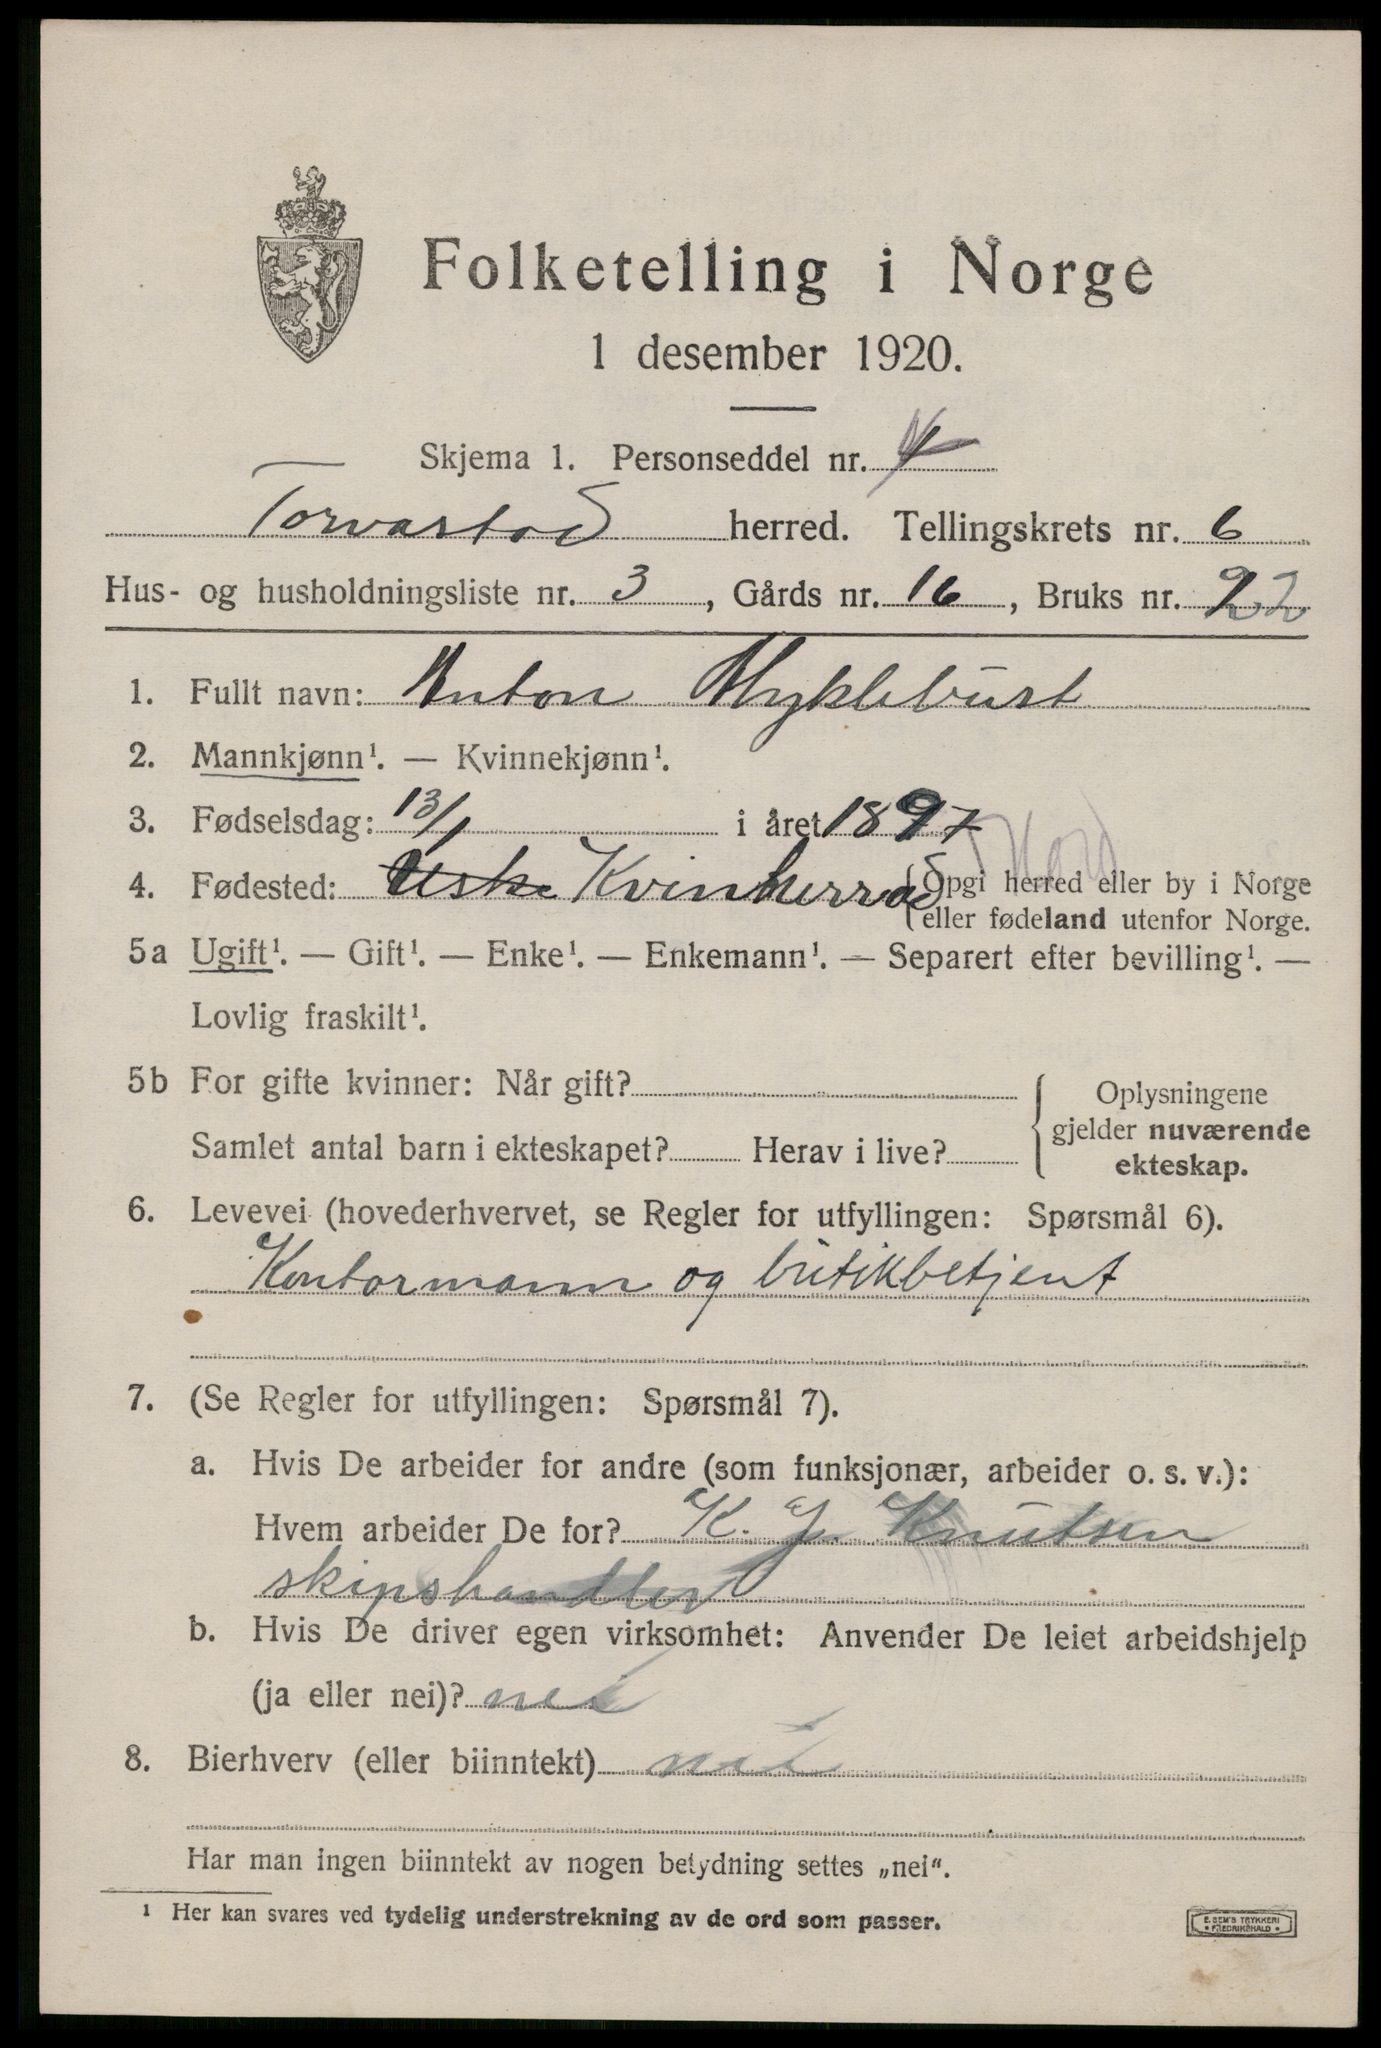 Folketelling i Norge
1 desember 1920.
Skjema 1. Personseddel nr. 4
Torvastad herred. Tellingskrets nr. 6
Hus- og husholdningsliste nr. 3, Gårds nr. 16, Bruks nr. 22
1. Fullt navn: Anton Myklebust
2. Mannkjønn¹. — Kvinnekjønn¹.
3. Fødselsdag: 13/1 i året 1897
4. Fødested: Kvinherrad {Opgi herred eller by i Norge
eller fødeland utenfor Norge.
Hord
5a Ugift¹. — Gift¹. — Enke¹. — Enkemann¹. — Separert efter bevilling¹. —
Lovlig fraskilt¹.
5b For gifte kvinner: Når gift?
Samlet antal barn i ekteskapet? Herav i live?
Oplysningene
gjelder nuværende
ekteskap.
6. Levevei (hovederhvervet, se Regler for utfyllingen: Spørsmål 6).
Kontormann og butikbetjent
7. (Se Regler for utfyllingen: Spørsmål 7).
a. Hvis De arbeider for andre (som funksjonær, arbeider o. s. v.):
Hvem arbeider De for? K. J. Knutsen
skipshandler
b. Hvis De driver egen virksomhet: Anvender De leiet arbeidshjelp
(ja eller nei)? nei
8. Bierhverv (eller biinntekt) nei
Har man ingen biinntekt av nogen betydning settes „nei“.
¹ Her kan svares ved tydelig understrekning av de ord som passer.
E. SEM'S TRYKKERI
• FREDRIKSHALD •